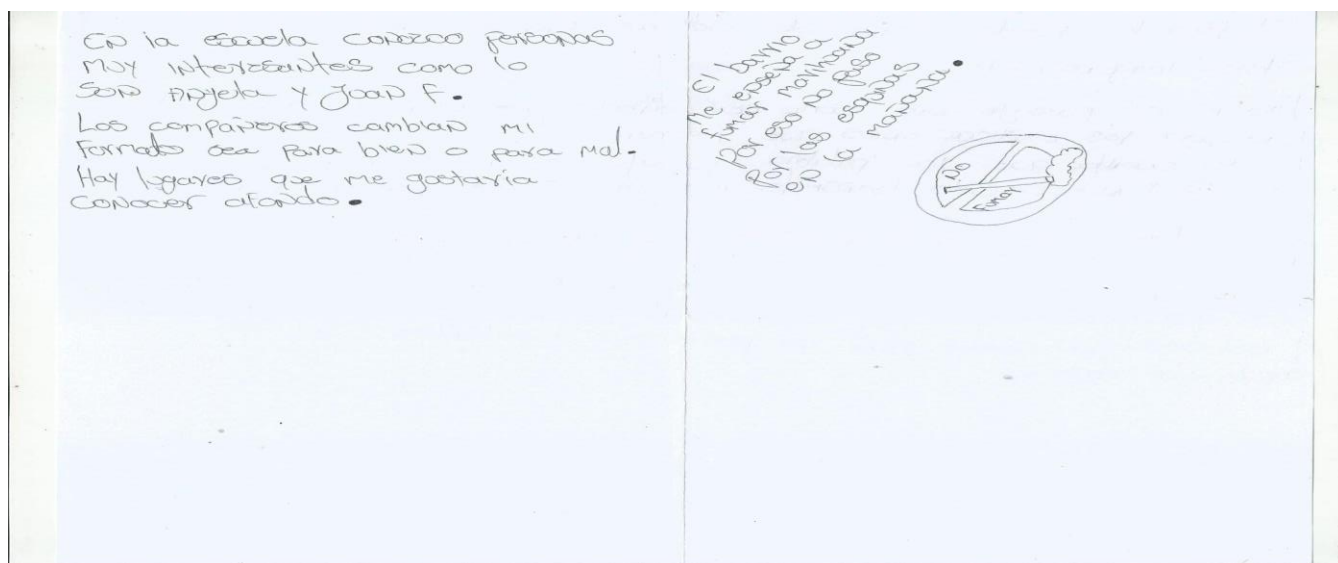 En la escuela conozco personas
muy interesantes como lo
son Anyela y Juan F.
Los compañeros cambian mi
formado sea para bien o para mal.
Hay lugares que me gustaria
conocer afondo.
El barrio
me enseña a
fumar marihuana
por eso no paso
por las esquinas
en la mañana.
NO
Fumar